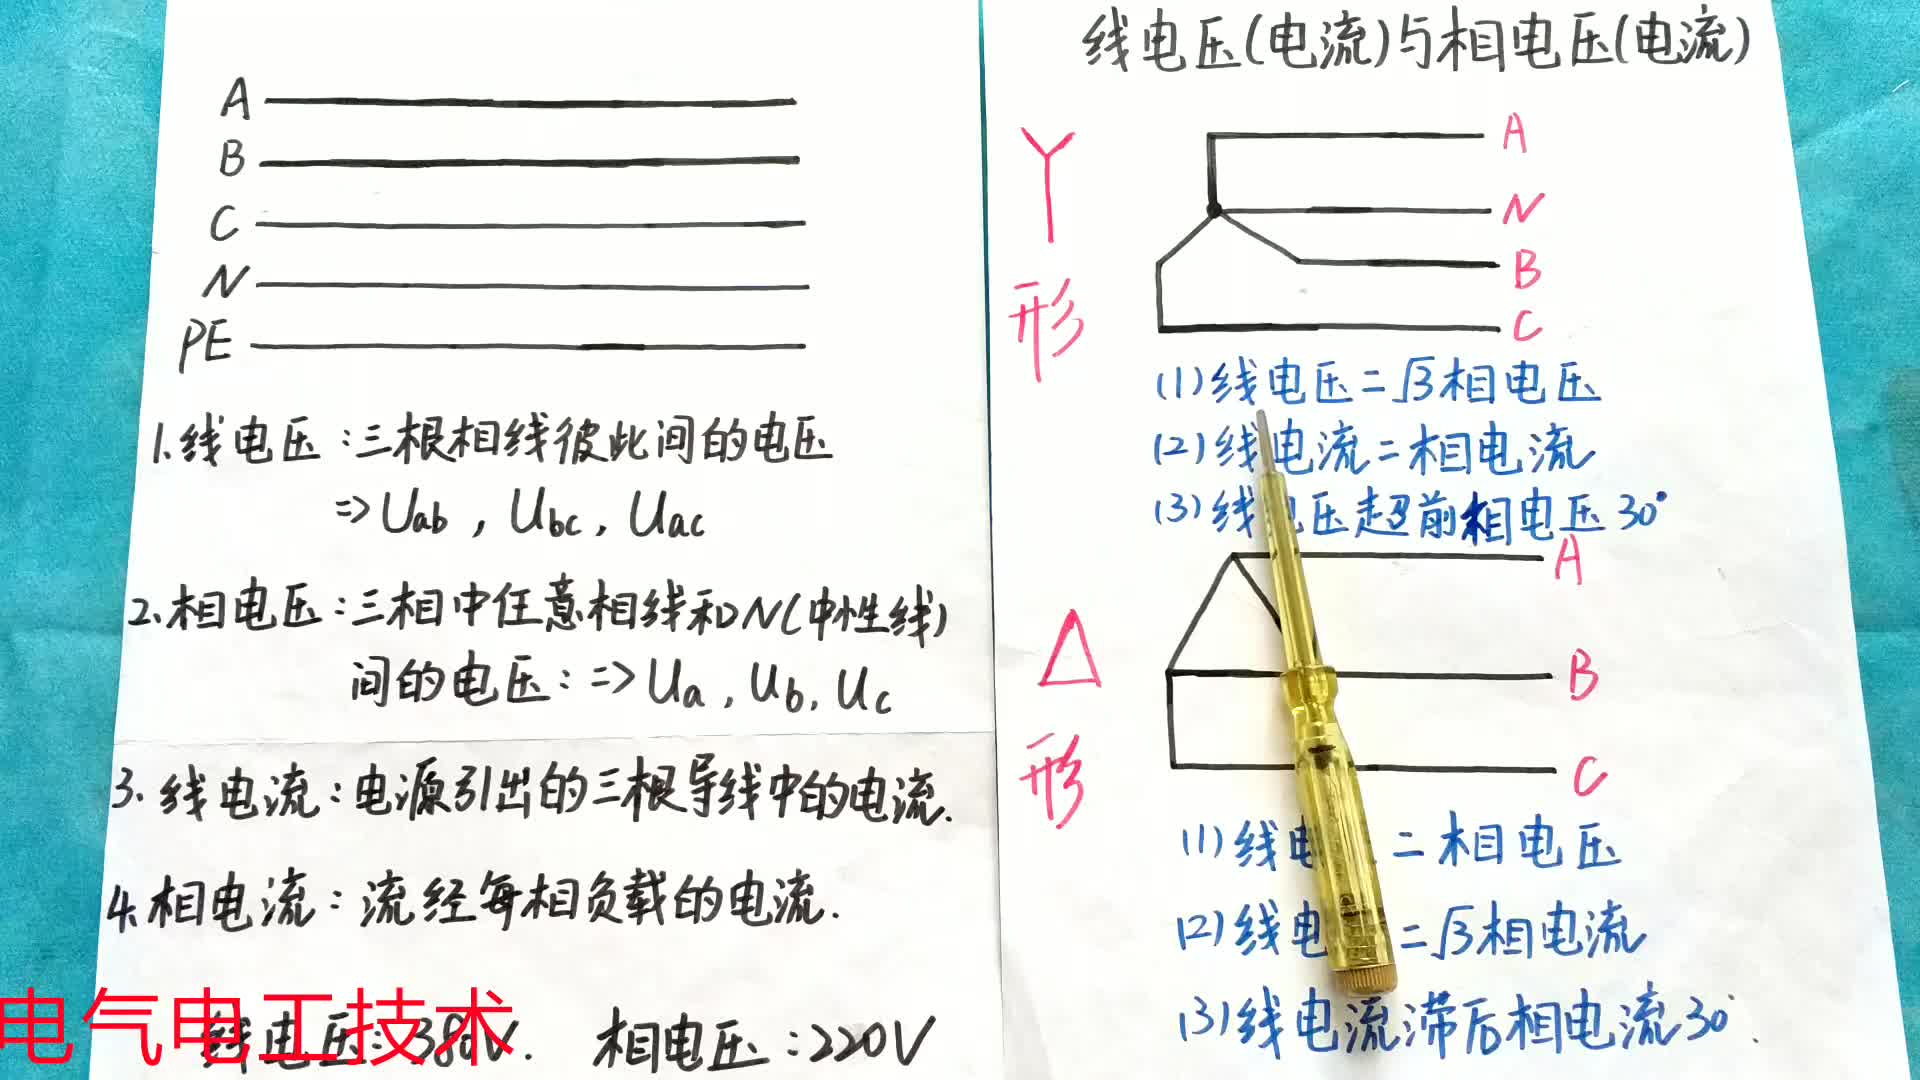 A
B
C
N
PE
1.线电压:三根相线彼此间的电压
=> Uab , Ubc , Uac
2.相电压:三相中任意相线和N(中性线)
间的电压: => Ua , Ub , Uc
3.线电流:电源引出的三根导线中的电流.
4.相电流:流经每相负载的电流.
线电压:380V. 相电压:220V
电气电工技术
线电压(电流)与相电压(电流)
Y
形
A
N
B
C
(1)线电压=√3相电压
(2)线电流=相电流
(3)线电压超前相电压30°
△
形
A
B
C
(1)线电 =相电压
(2)线电 =√3相电流
(3)线电流滞后相电流30°.